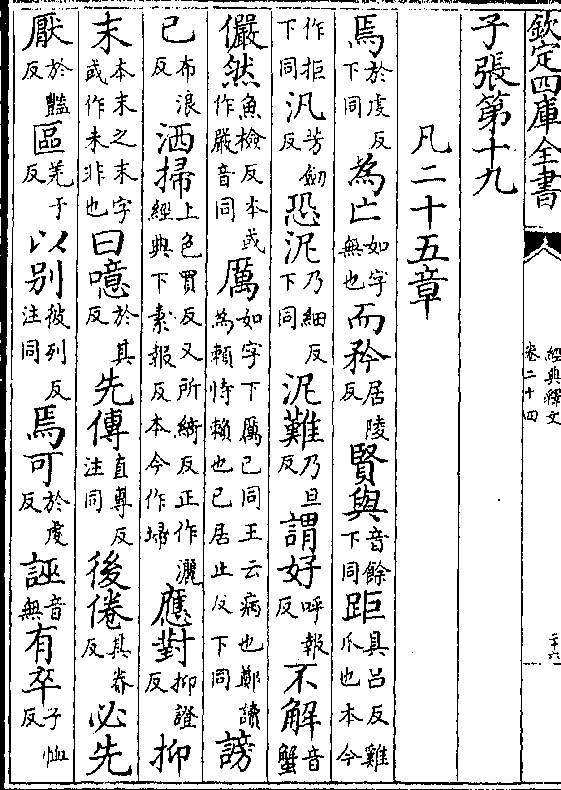 欽定四庫全書 經典釋文 卷二十四
子張第十九
凡二十五章
焉於虔反下同為亡如字無也而矜居陵反賢與音餘下同距具呂反雞爪也本今
作拒下同汎芳劒反恐泥乃細反下同泥難乃旦反謂好呼報反不解音蟹
儼然魚檢反本或作嚴音同厲如字下厲已同王云病也鄭讀為賴恃賴也已居止反下同謗
已布浪反洒掃上色買反又所綺反正作灑經典下素報反本今作埽應對抑證反抑
末本末之末字或作未非也曰噫於其反先傳直專反注同後倦其眷反必先
厭於豔反區羌于反以别彼列反注同焉可於虔反誣音無有卒子恤反